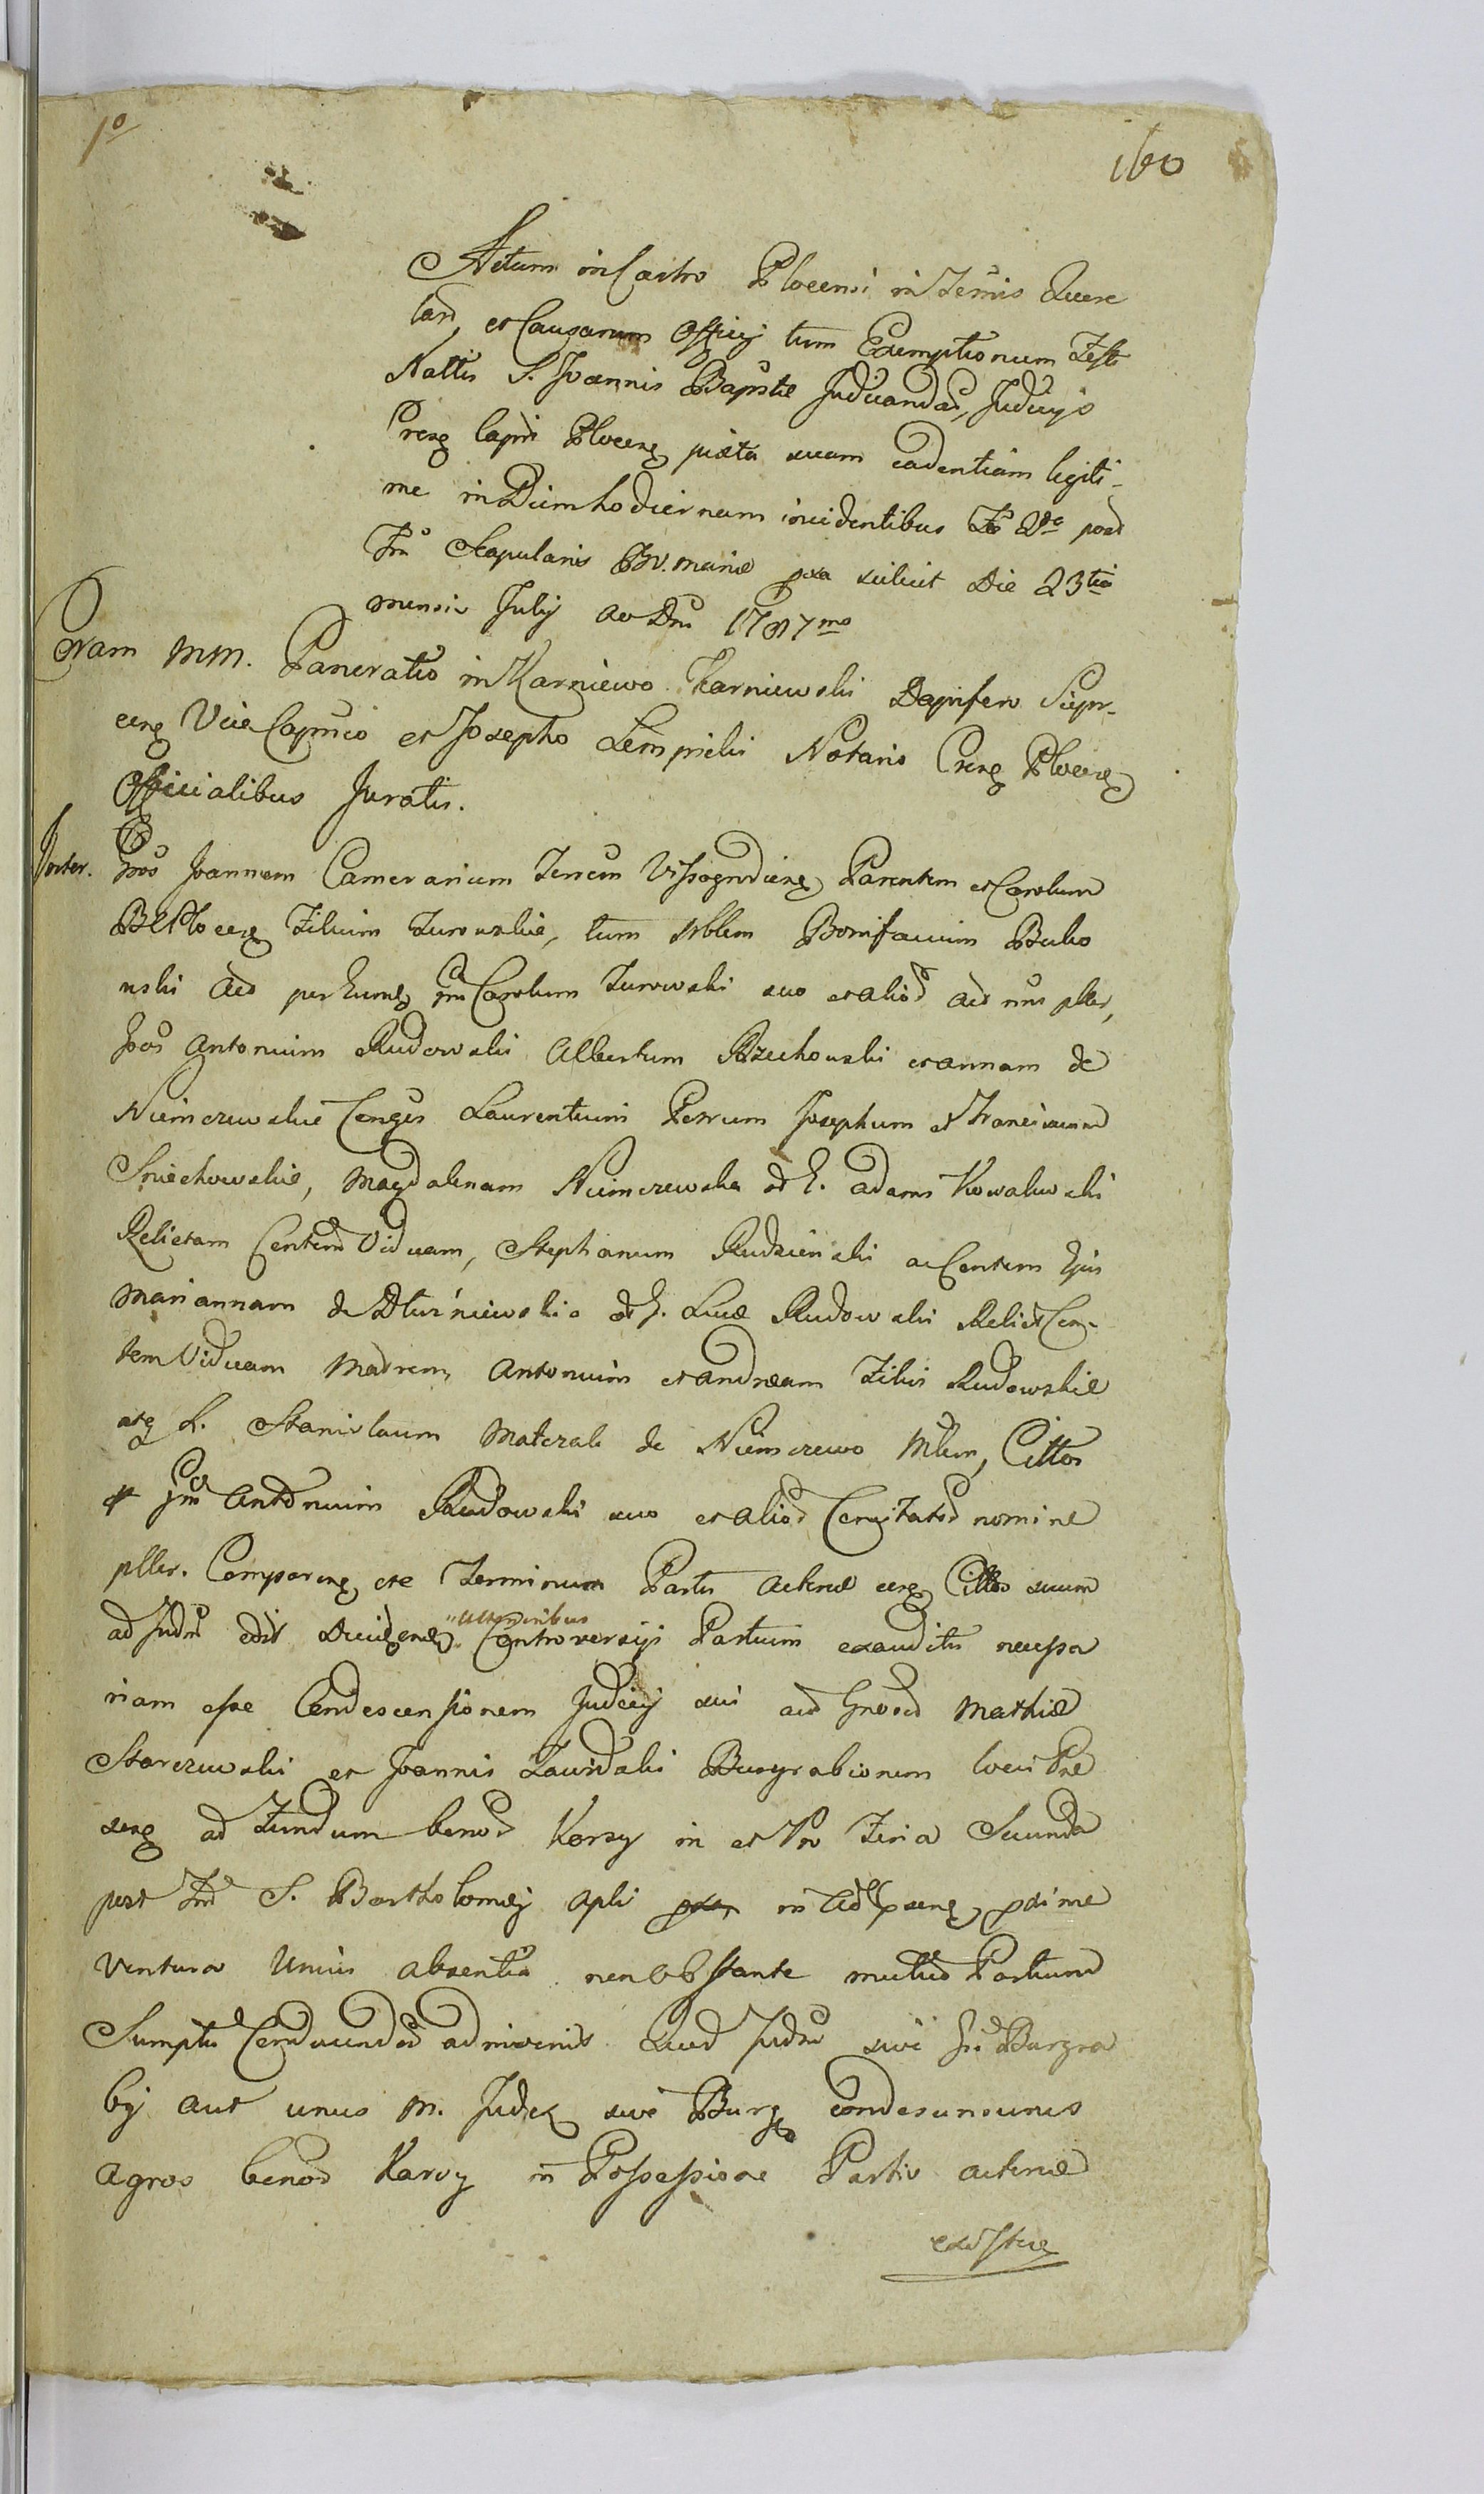 1o
160
Actum in Castro Plocensi in Termis Quere
lard, et Causarum Officij tum Exemptionum Festo
Nattis S. Joannis Baptstæ Judicandar, Judicijs
Crens Capni Plocens juxta suam cadentiam legiti-
me in Diem hodiernam incidentibus Fa 2da post
Fm Scapularis B.V. Mariæ pxa scilicet Die 23tia
mensis Julij Ao Dni 1787mo
Coram MM. Pancratio in Karniewo Karniewski Dapifero Sierp-
cens Vice Capnio et Josepho Lempicki Notario Crens Plocens
Officialibus Juratis.
Inter. Gnos Joannem Camerarium Terrem Vissogrodiens Parentem et Carolum
BC Plocens Filium Turowskie, tum Nblem Bonifacium Buko
wski Act per eund Carolum Turowski suo et aliod Act nnis pller,
Gnos Antonium Rudowski Albertum Rzechowski et Annam de
Niemczewskie Conges Laurentium Petrum Josephum et Franciscum
Sniechowskie, Magdalenam Niemczewska od G. Adami Kowalewski
Relictam Contem Viduam, Stephanum Rudzienski ac Contem Ejus
Mariannam de Dłuzniewskie G. Lucæ Rudowski Relict Con-
tem Viduam Matrem, Antonium et Andream Filios Rudowskie
atq L. Stanislaum Materak de Niemczewo Mlem, Cittos
Antonium Rudowski suo et aliod Concitatod nomine
pller. Comparens ex Termino Partis Actoreæ Citto suum
ad Judm edit "ulterioribus" Controversijs Partium exauditis necessa
riam esse Condescensionem Judicij sui aut Gnosod Mathiæ
Starczewski et Joannis Zawidzki Burgrabionum loci Præ
sens ad Fundum bonod Karsy in et pro Feria Secunda
post Fm S. Bartholomæj Apli in Ao præsens pxime
ventura Unius absentia non obstante mutuo Partium
Sumptu Conducendod adinvenit. Quod Judm sive Gni Burgra
bij aut unus M. Judex sive Burg condescensurus
agros bonod Karsy in Possessione Partis Actoreæ
existens